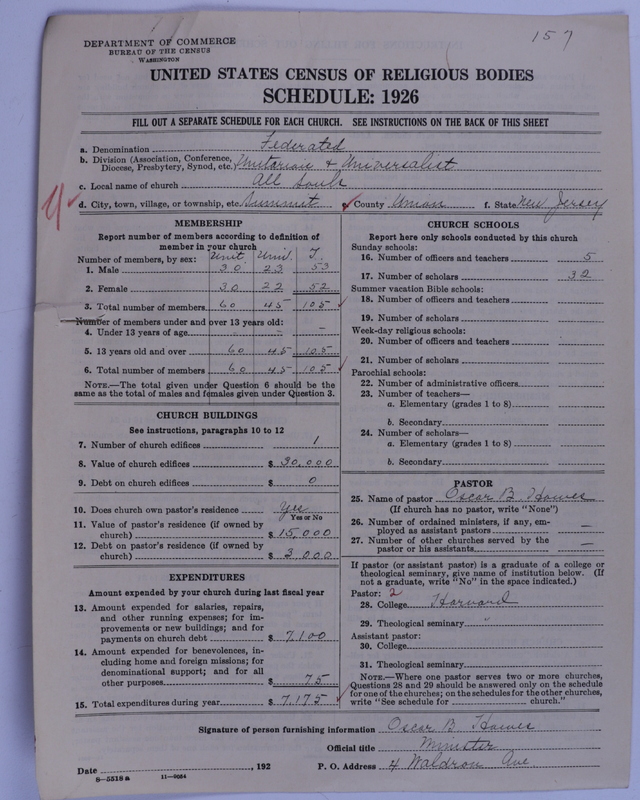 157
DEPARTMENT OF COMMERCE
BUREAU OF THE CENSUS
WASHINGTON
UNITED STATES CENSUS OF RELIGIOUS BODIES
SCHEDULE: 1926
FILL OUT A SEPARATE SCHEDULE FOR EACH CHURCH. SEE INSTRUCTIONS ON THE BACK OF THIS SHEET
a. Denomination Federated
b. Division (Association, Conference, Diocese, Presbytery, Synod, etc.) Unitarian & Universalist
c. Local name of church All Souls
d. City, town, village, or township, etc. Summit e. County Union f. State New Jersey
MEMBERSHIP
Report number of members according to definition of
member in your church
Number of members, by sex: Unit. Univ. T.
1. Male 30 23 53
2. Female 30 22 52
3. Total number of members 60 45 105
Number of members under and over 13 years old:
4. Under 13 years of age – –
5. 13 years old and over 60 45 105
6. Total number of members 60 45 105
NOTE.—The total given under Question 6 should be the
same as the total of males and females given under Question 3.
CHURCH BUILDINGS
See instructions, paragraphs 10 to 12
7. Number of church edifices 1
8. Value of church edifices $ 30,000
9. Debt on church edifices $ 0
10. Does church own pastor's residence Yes
Yes or No
11. Value of pastor's residence (if owned by
church) $ 15,000
12. Debt on pastor's residence (if owned by
church) $ 3,000
EXPENDITURES
Amount expended by your church during last fiscal year
13. Amount expended for salaries, repairs,
and other running expenses; for im-
provements or new buildings; and for
payments on church debt $ 7,100
14. Amount expended for benevolences, in-
cluding home and foreign missions; for
denominational support; and for all
other purposes $ 75
15. Total expenditures during year $ 7,175
CHURCH SCHOOLS
Report here only schools conducted by this church
Sunday schools:
16. Number of officers and teachers 5
17. Number of scholars 32
Summer vacation Bible schools:
18. Number of officers and teachers
19. Number of scholars
Week-day religious schools:
20. Number of officers and teachers
21. Number of scholars
Parochial schools:
22. Number of administrative officers
23. Number of teachers—
a. Elementary (grades 1 to 8)
b. Secondary
24. Number of scholars—
a. Elementary (grades 1 to 8)
b. Secondary
PASTOR
25. Name of pastor Oscar B. Hawes
(If church has no pastor, write "None")
26. Number of ordained ministers, if any, em-
ployed as assistant pastors —
27. Number of other churches served by the
pastor or his assistants —
If pastor (or assistant pastor) is a graduate of a college or
theological seminary, give name of institution below. (If
not a graduate, write "No" in the space indicated.)
Pastor: 2
28. College Harvard
29. Theological seminary "
Assistant pastor:
30. College
31. Theological seminary
NOTE.—Where one pastor serves two or more churches,
Questions 28 and 29 should be answered only on the schedule
for one of the churches; on the schedules for the other churches,
write "See schedule for church."
Signature of person furnishing information Oscar B Hawes
Official title Minister
Date , 192 P. O. Address 4 Waldron Ave.
8—5518 a 11—9054